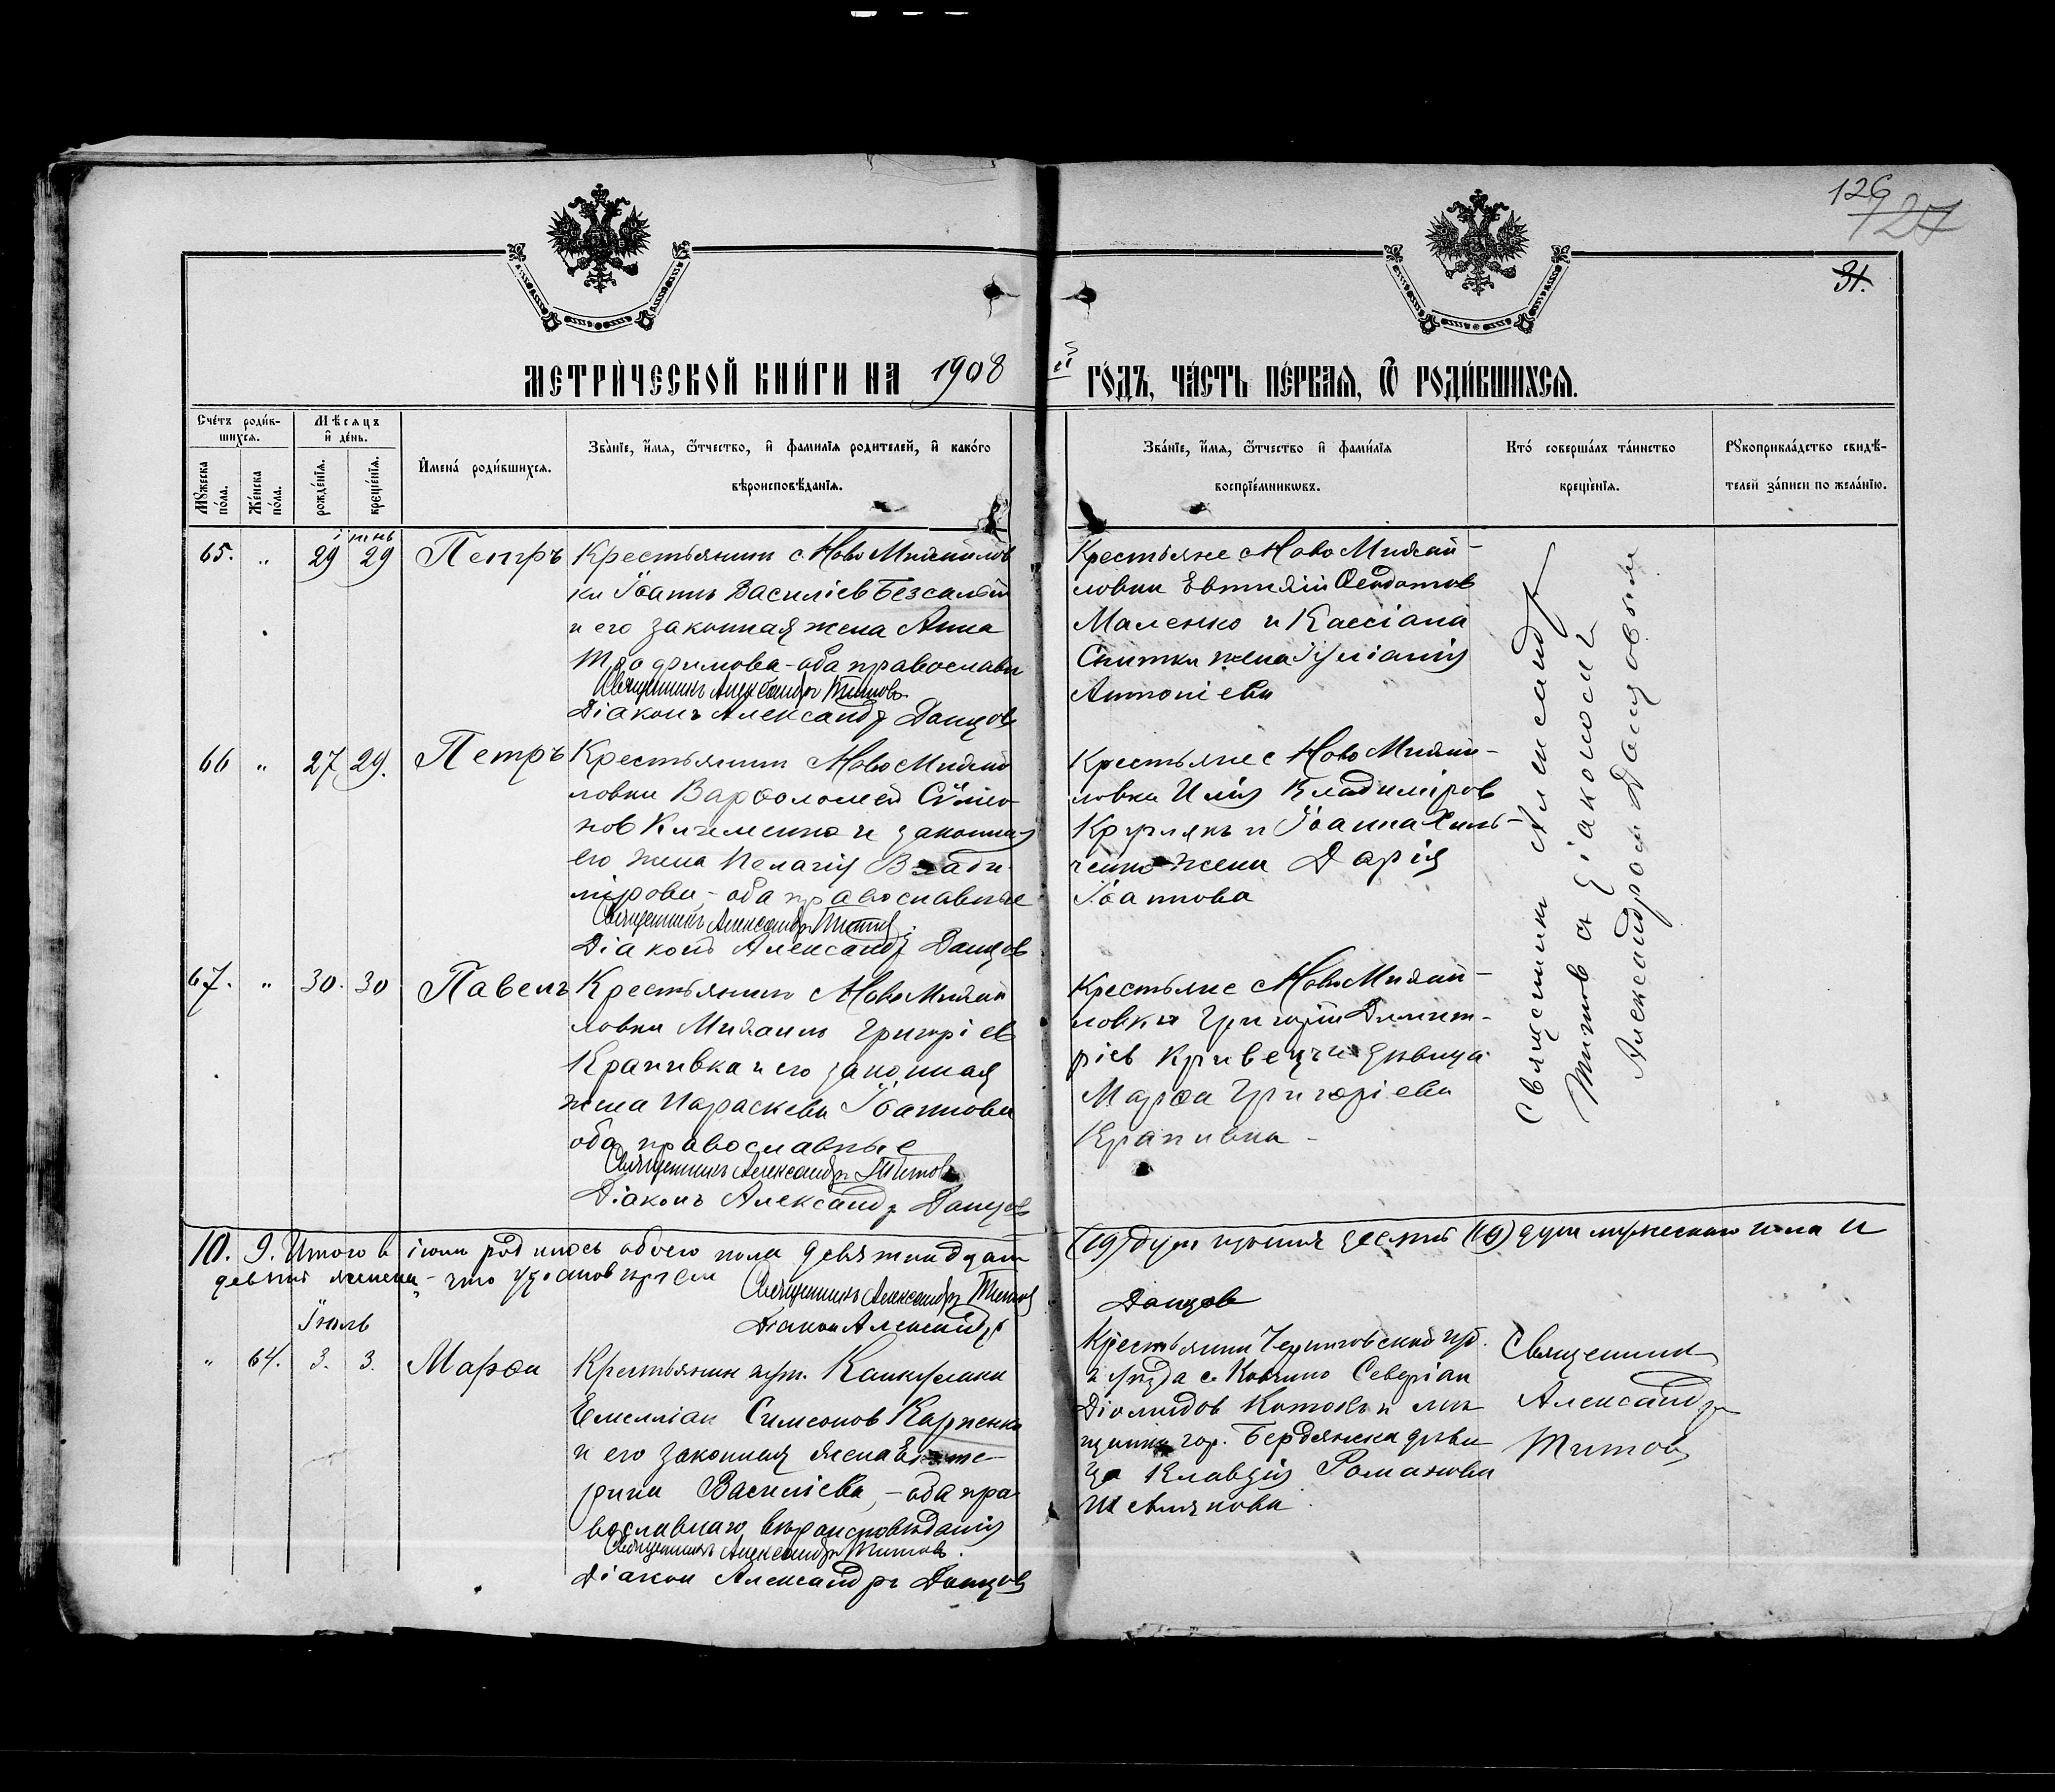 126
127
31.
МЕТРИЧЕСКОЙ КНИГИ НА 1908 й ГОДЪ, ЧАСТЬ ПЕРВАЯ, Ѿ РОДИВШИХСЯ.
Счетъ родив-
шихся.
Мужеска
пола.
Женска
пола.
Мѣсяцъ
и день.
рожденія.
крещенія.
Имена родившихся.
Званіе, имя, ѿтчество, и фамилія родителей, и какого
вѣроисповѣданія.
Званіе, имя, ѿтчество и фамилія
воспріемниковъ.
Кто совершалъ таинство
крещенія.
Рукоприкладство свидѣ-
телей записи по желанію.
іюнь
65. " 29 29 Петръ
Крестьянинъ с. Ново Михайлов
ки Іоаннъ Василіев Безсалый
и его законная жена Анна
Трофимова - оба православн
Священникъ Александръ Титовъ
Діаконъ Александр Данцов
Крестьяне с Ново Михай-
ловки Евтихій Феодотов
Маленко и Кассіана
Снитки жена Іуліанія
Антоніева
66 " 27 29. Петръ
Крестьянин с Ново Михай
ловки Варфоломей Сѵмео-
нов Клименко и законная
его жена Пелагія Влади-
мірова - оба православные
Священникъ Александръ Титов
Діаконъ Александр Данцов
Крестьяне с Ново Михай-
ловки Илія Владиміров
Кругляк и Іоанна
жена Дарія
Іоаннова
67. " 30. 30 Павелъ
Крестьянинъ с Ново Михай
ловки Михаилъ Григоріев
Крапивка и его законная
жена Параскева Іоаннова
оба православные
Священникъ Александръ Титовъ
Діаконъ Александр Данцов
Крестьяне с Ново Михай-
ловки Григорій Димит-
ріев Кривец и дѣвица
Марфа Григоріева
Крапивка -
Священник Александр
Титов с діаконом
Александром Данцовым
10. 9. Итого в іюнѣ родилось обоего пола девятнадцат (19) душ десять (10) душ мужескаго пола и
девять женска - что удостовѣряем
Священникъ Александръ Титов
Діакон Александръ Данцов
Іюль
" 64. 3. 3. Марфа
Крестьянин
Емеліан Симеонов Карпенко
и его законная жена Екате-
рина Василіева, - оба пра-
вославнаго вѣроисповѣданія
Священникъ Александръ Титовъ.
Діакон Александръ Данцов
Крестьянин Черниговской губ.
и уѣзда с. Северіан
Діомидов и мѣ-
щанка гор. Бердянска дѣви-
ца Клавдія Романова
Священник
Александръ
Титов